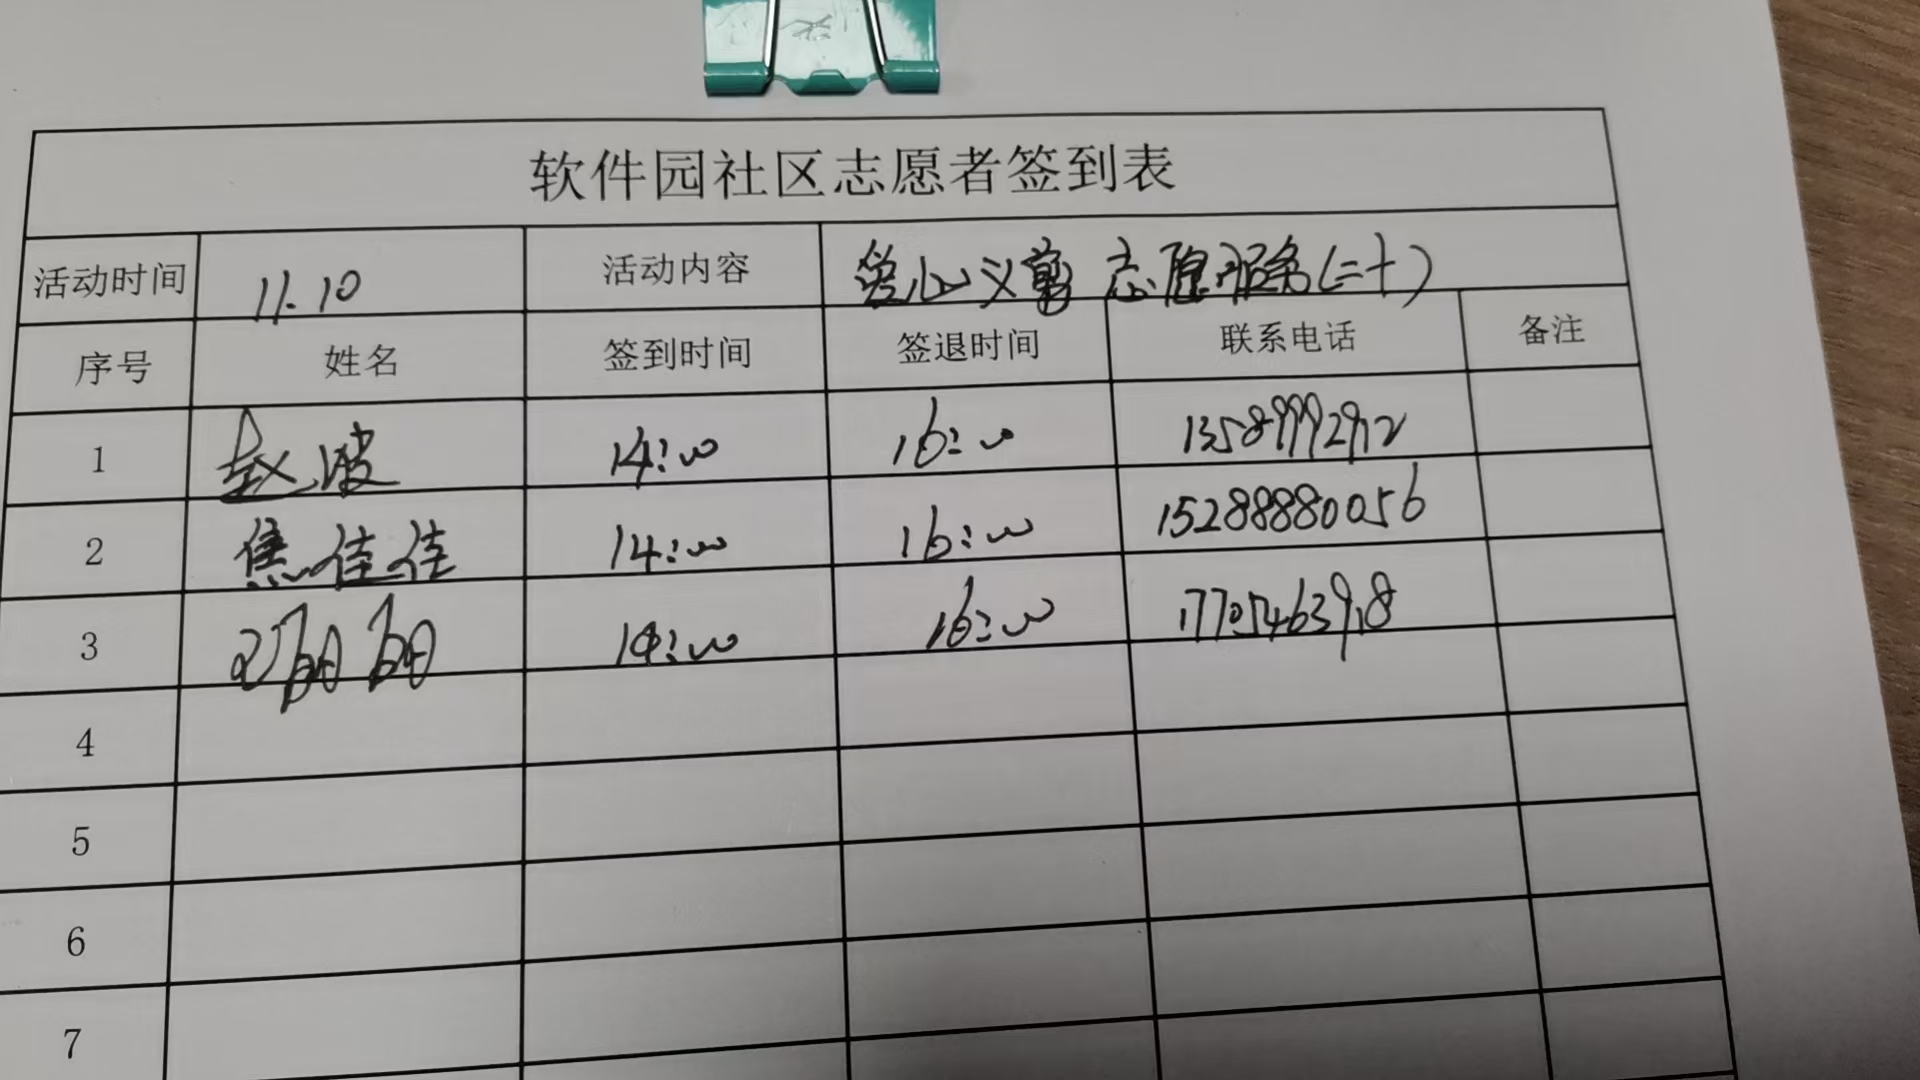 软件园社区志愿者签到表
活动时间 11.10 活动内容 爱心义剪志愿服务(二十)
序号 姓名 签到时间 签退时间 联系电话 备注
1 赵波 14:00 16:00 13589992912
2 焦佳佳 14:00 16:00 15288880056
3 14:00 16:00
4
5
6
7